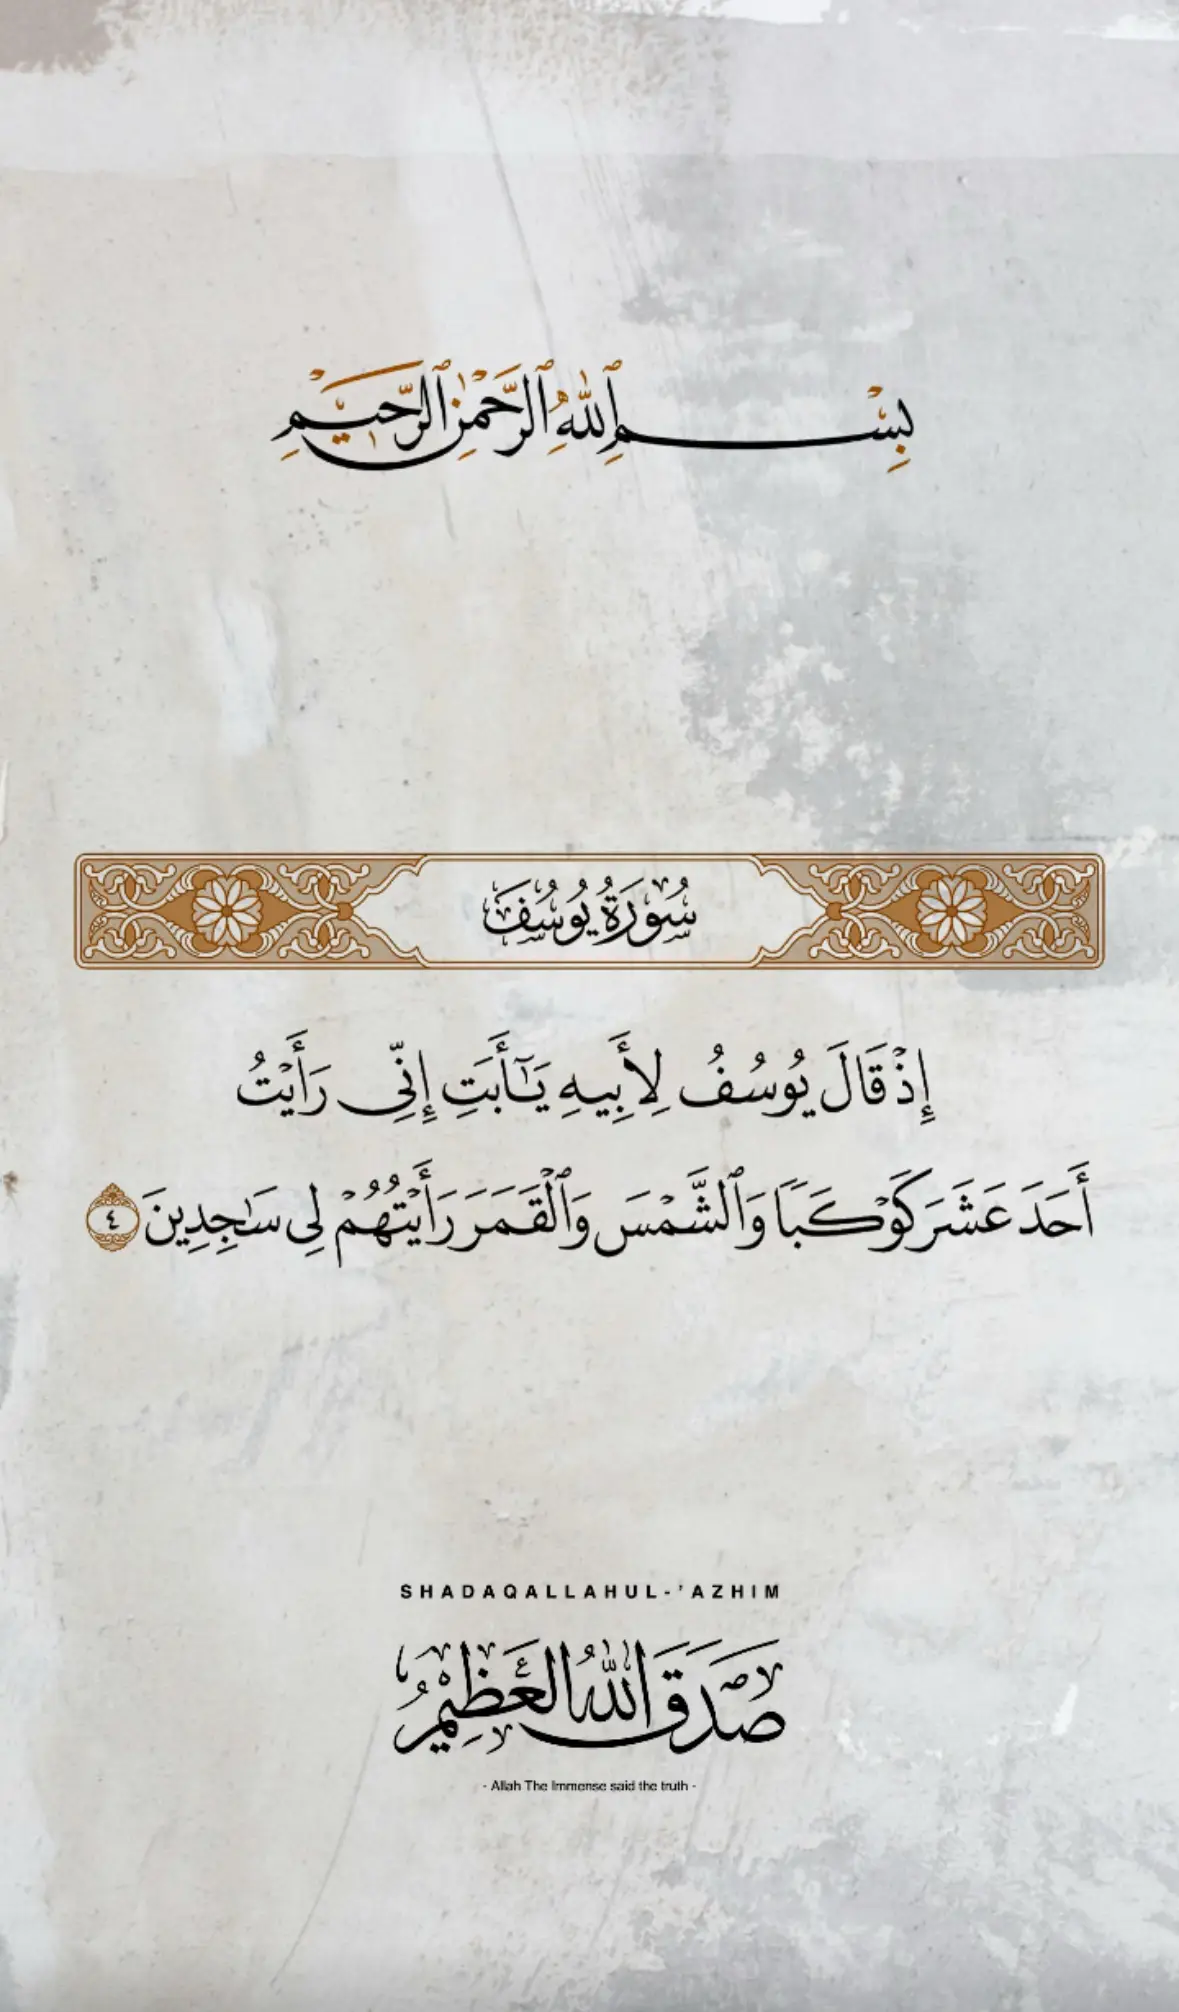 بِسْمِ ٱللَّهِ ٱلرَّحْمَٰنِ ٱلرَّحِيمِ
سُورَةُ يُوسُفَ
إِذْ قَالَ يُوسُفُ لِأَبِيهِ يَٰٓأَبَتِ إِنِّى رَأَيْتُ
أَحَدَ عَشَرَ كَوْكَبًا وَٱلشَّمْسَ وَٱلْقَمَرَ رَأَيْتُهُمْ لِى سَٰجِدِينَ ٤
SHADAQALLAHUL-'AZHIM
صَدَقَ اللَّهُ الْعَظِيْمُ
- Allah The Immense said the truth -